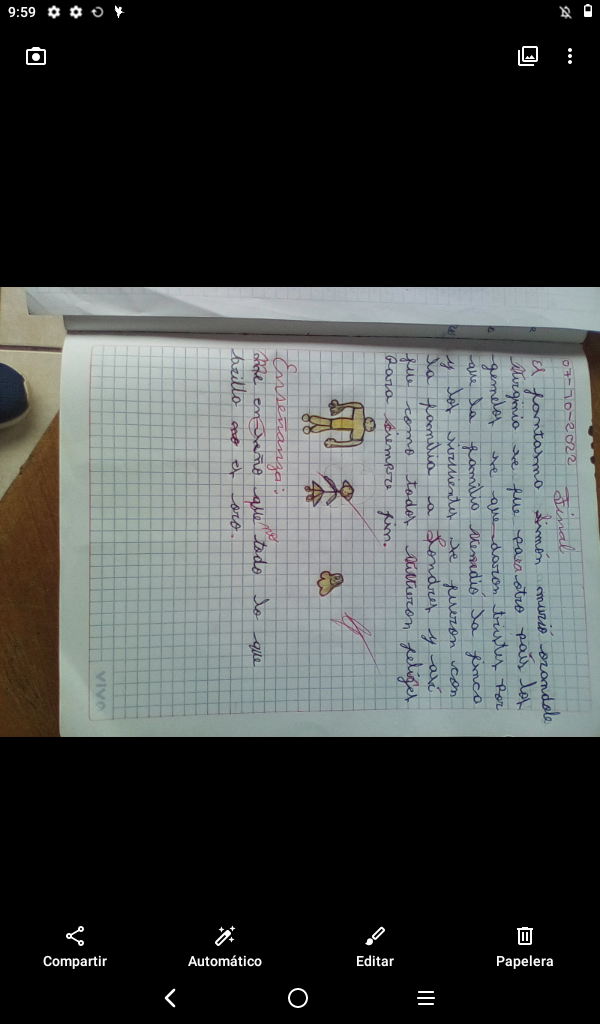 9:59
07-10-2022 Final
El fantasma Simón murió orandole
Virginia se fue para otro pais los
gemelos se que daron tristes por
que la familia Vendió la finca
y los sirvientes se fueron con
la familia a Londres y asi
fue como todos Vivieron felizes
para siempre fin.
Enseñanza:
Me enseño que no todo lo que
brilla es oro.
VIVO
Compartir
Automático
Editar
Papelera